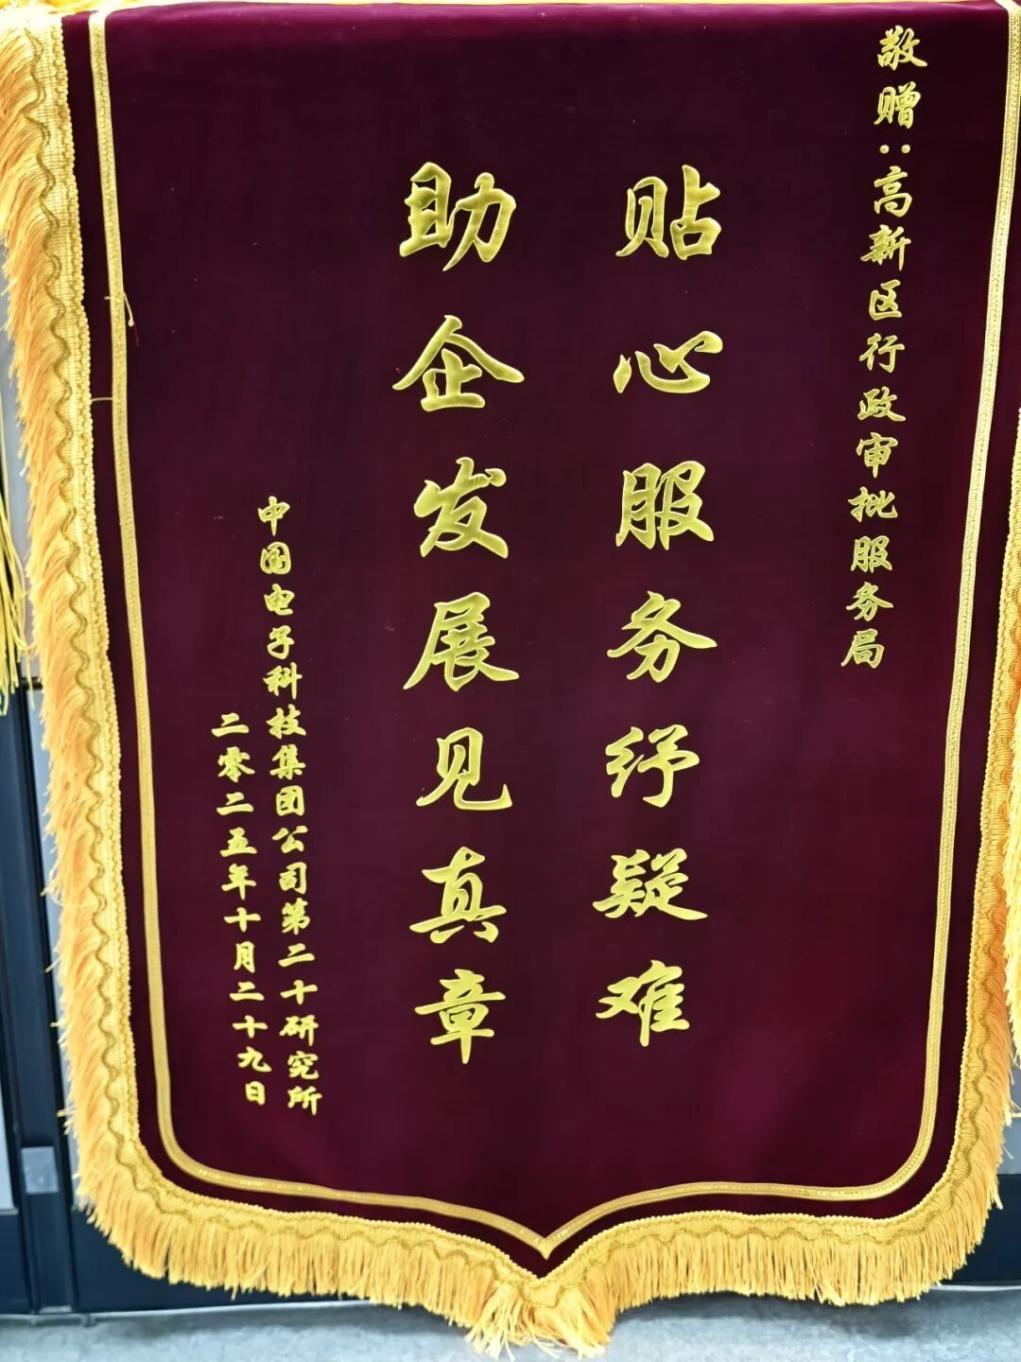 敬赠：高新区行政审批服务局
贴心服务纾疑难
助企发展见真章
中国电子科技集团公司第二十研究所
二零二五年十月二十九日